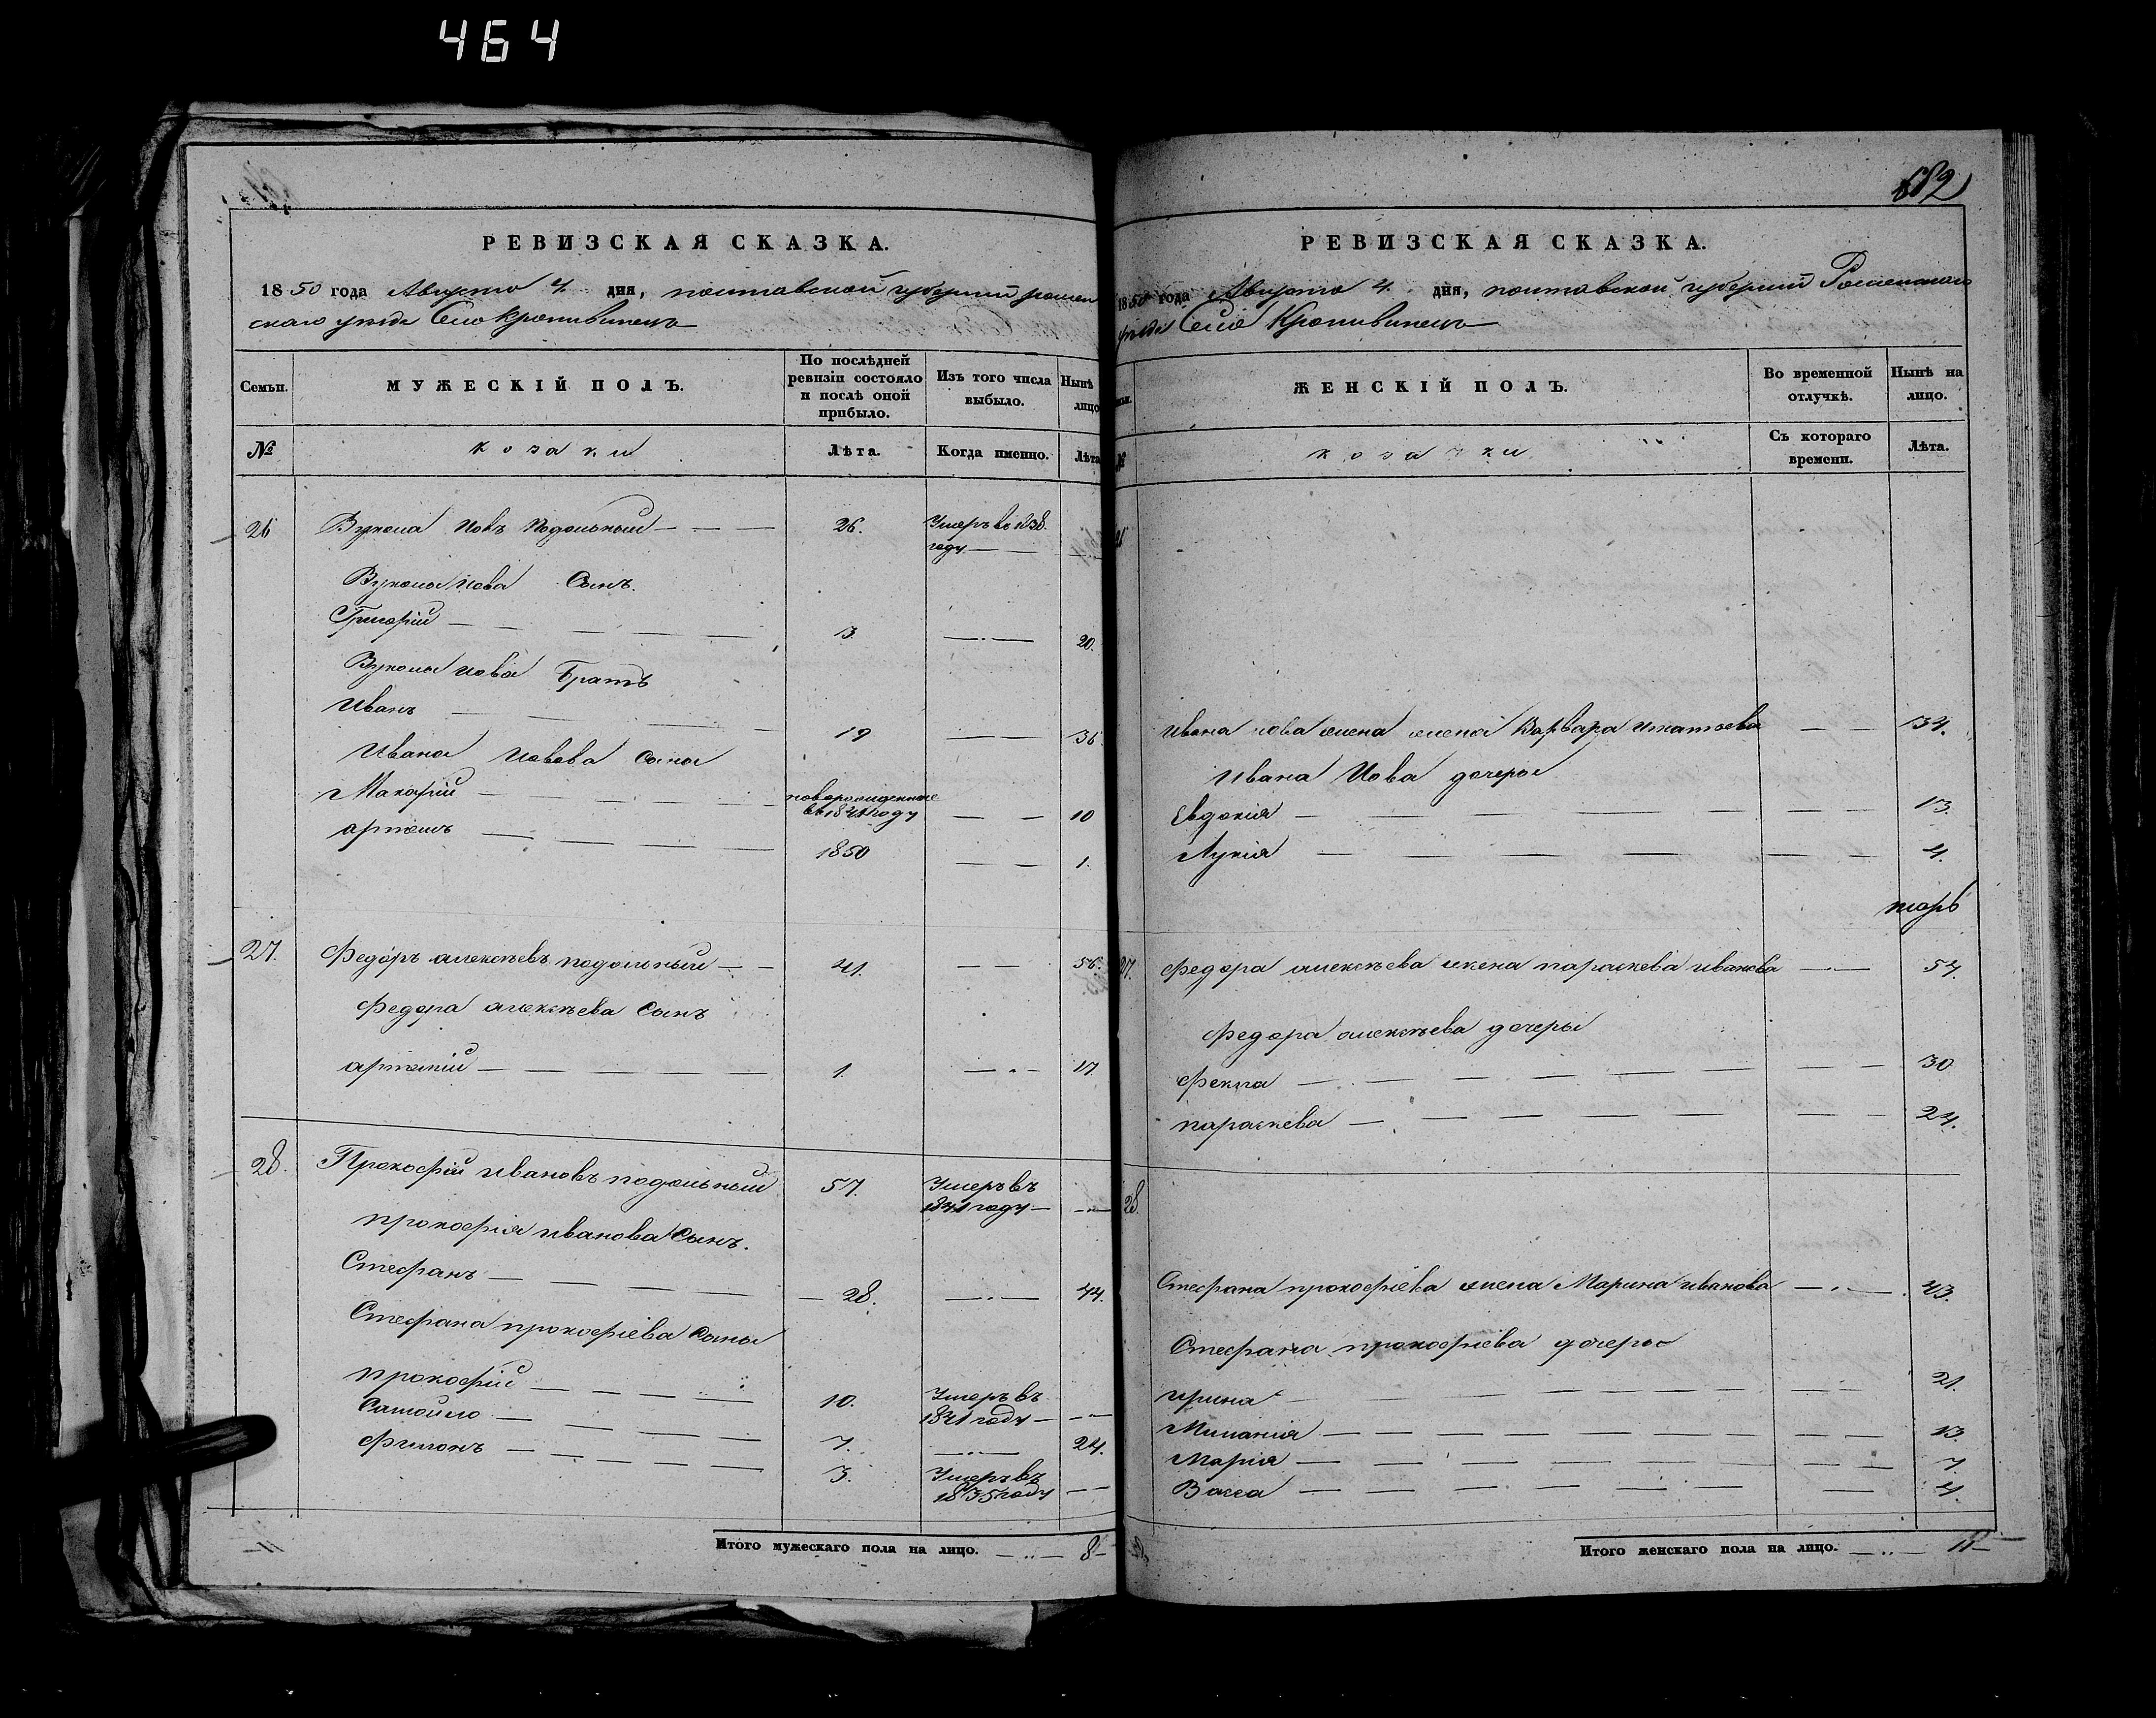 464
РЕВИЗСКАЯ СКАЗКА.
1850 года Августа 4 дня, полтавской губернии ромен
скаго уезда Село Кропивинецъ
Семьи.
МУЖЕСКІЙ ПОЛЪ.
По послѣдней ревизіи состояло и послѣ оной прибыло.
Изъ того числа выбыло.
Нынѣ лицо
№
козаки
Лѣта.
Когда именно.
Лѣта
26 Вукола Іовъ Подольный 26. Умеръ въ 1838. году
Вукола Іова Сынъ.
Григорій 3. 20.
Вукола Іова Братъ
Иванъ 19 36
Ивана Иовова Сыны
Макарій новорожденные въ 1841 году 10
артемъ 1850 1.
27. Федоръ алексѣевъ подольный 41. 56.
Федора алексѣева Сынъ
артемій 1. 17
28. Прокофій ивановъ подольный 57. Умеръ въ 1841 году
прокофія иванова Сынъ.
Стефанъ 28. 44.
Стефана прокофіева Сыны
прокофій 10. Умеръ въ 1841 году
Самойло 7. 24.
филонъ 3. Умеръ въ 1835 году
Итого мужескаго пола на лицо. 8
682
РЕВИЗСКАЯ СКАЗКА.
1850 года Августа 4 дня, полтавской губерніи Роменскаго
уезда Село Кропивинецъ
ЖЕНСКІЙ ПОЛЪ.
Во временной отлучкѣ.
Нынѣ на лицо.
№
козачки
Съ котораго времени.
Лѣта.
26
Ивана иова жена Варвара игнатьева 34.
Ивана Иова дочеры
Евдокія 13.
Лукія 4.
27. федора алексѣева жена параскева иванова 54.
федора алексѣева дочеры
Фекла 30
параскева 24.
28.
Стефана прокофіева жена Марина иванова 43.
Стефана прокофіева дочеры
ирина 21.
Миланія 13.
Марія 7.
Васса 4.
Итого женскаго пола на лицо. 11